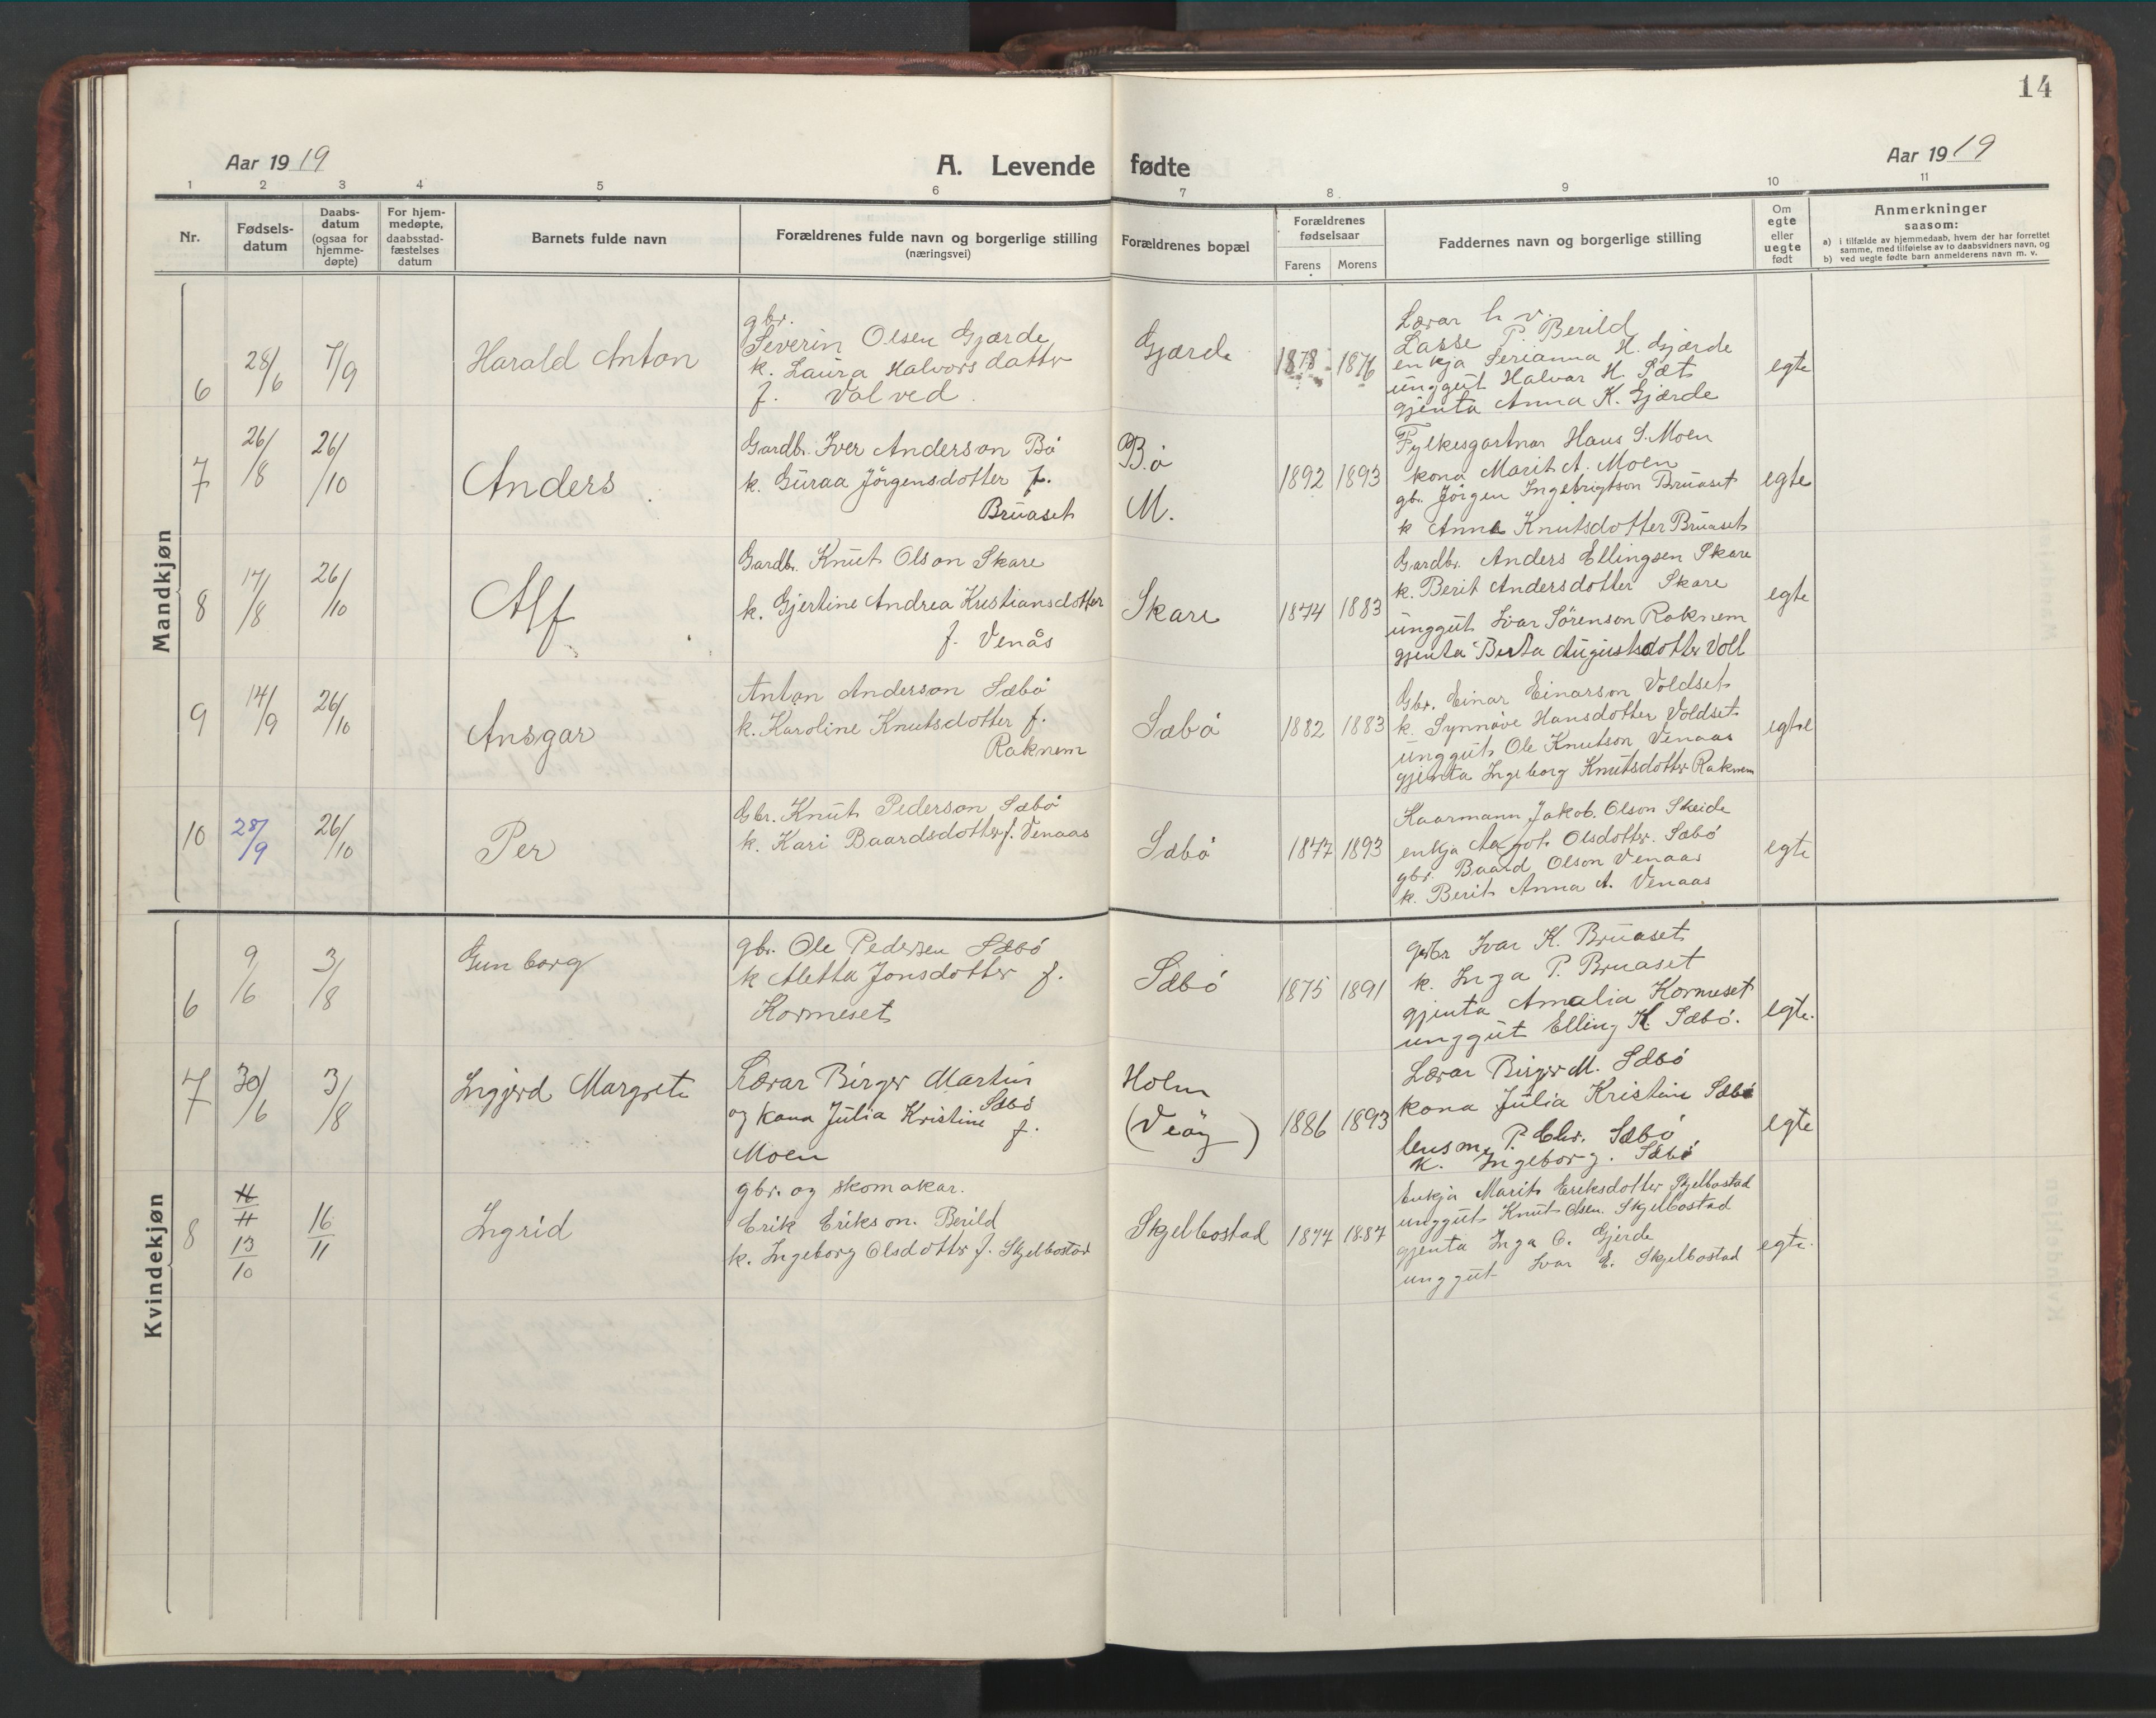 14
Aar 1919
A. Levende fødte
Aar 1919
1 2 3 4 5 6 7 8 9 10 11
Nr.
Fødsels-
datum
Daabs-
datum
(ogsaa for
hjemme-
døpte)
For hjem-
medøpte,
daabsstad-
fæstelses
datum
Barnets fulde navn
Forældrenes fulde navn og borgerlige stilling
(næringsvei)
Forældrenes bopæl
Forældrenes
fødselsaar
Farens Morens
Faddernes navn og borgerlige stilling
Om
egte
eller
uegte
født
Anmerkninger
saasom:
a) i tilfælde av hjemmedaab, hvem der har forrettet
samme, med tilføielse av to daabsvidners navn, og
b) ved uegte fødte barn anmelderens navn m. v.
Mandkjøn
6
28/6
7/9
Harald Anton
gbr.
Severin Olsen Gjærde
k. Laura Halvorsdatter
f. Valved.
Gjærde
1878
1876
Lærar h. v.
Lasse P. Berild
enkja Serianna H. Gjærde
unggut Halvar H. Sæt
gjenta Anna K. Gjærde
egte
7
26/8
26/10
Anders
Gardbr. Iver Anderson Bö
k. Guraa Jörgensdotter f.
Bruaset
Bö
M.
1892
1893
Fylkesgartnar Hans S. Moen
kona Marit A. Moen
gbr. Jörgen Ingebrigtson Bruaset
k Anna Knutsdotter Bruaset
egte
8
17/8
26/10
Alf
Gardbr. Knut Olson Skare
k. Gjertine Andrea Kristiansdotter
f. Venås
Skare
1874
1883
Gardbr. Anders Ellingsen Skare
k. Berit Andersdotter Skare
unggut Ivar Sörenson Raknem
gjenta Berta Augustsdotter Voll
egte
9
14/9
26/10
Ansgar
Anton Anderson Sæbö
k. Karoline Knutsdotter f.
Raknem
Sæbö
1882
1883
Gbr. Einar Einarson Voldset
k. Synnöve Hansdotter Voldset
unggut Ole Knutson Venaas
gjenta Ingeborg Knutsdotter Raknem
egte
10
28/9
26/10
Per
Gbr. Knut Pederson Sæbö
k. Kari Baardsdotter f. Venaas
Sæbö
1877
1893
Kaarmann Jakob Olson Skeide
enkja Aagot Olsdotter Sæbö
gbr. Baard Olson Venaas
k. Berit Anna A. Venaas
egte
Kvindekjøn
6
9/6
3/8
Gunborg
gbr. Ole Pedersen Sæbö
k Aletta Jonsdotter f.
Kormeset
Sæbö
1875
1891
gbr Ivar K. Bruaset
k. Inga P. Bruaset
gjenta Amalia Kormeset
unggut Elling K. Sæbö.
egte.
7
30/6
3/8
Ingjerd Margrete
Lærar Birger Martin
Sæbö
og kona Julia Kristine f.
Moen
Holm
(Veöy)
1886
1893
Lærar Birger M. Sæbö
kona Julia Kristine Sæbö
lensm. P. Chr. Sæbö
k. Ingeborg. Sæbö
egte
8
11/11
13/10
16/11
Ingrid
gbr. og skomakar.
Erik Erikson Berild
k. Ingeborg Olsdotter f. Skjelbostad
Skjelbostad
1877
1887
Enkja Marit Eriksdotter Skjelbostad
unggut Knut Olsen Skjelbostad
gjenta Inga O. Gjerde
unggut Ivar E. Skjelbostad
egte.